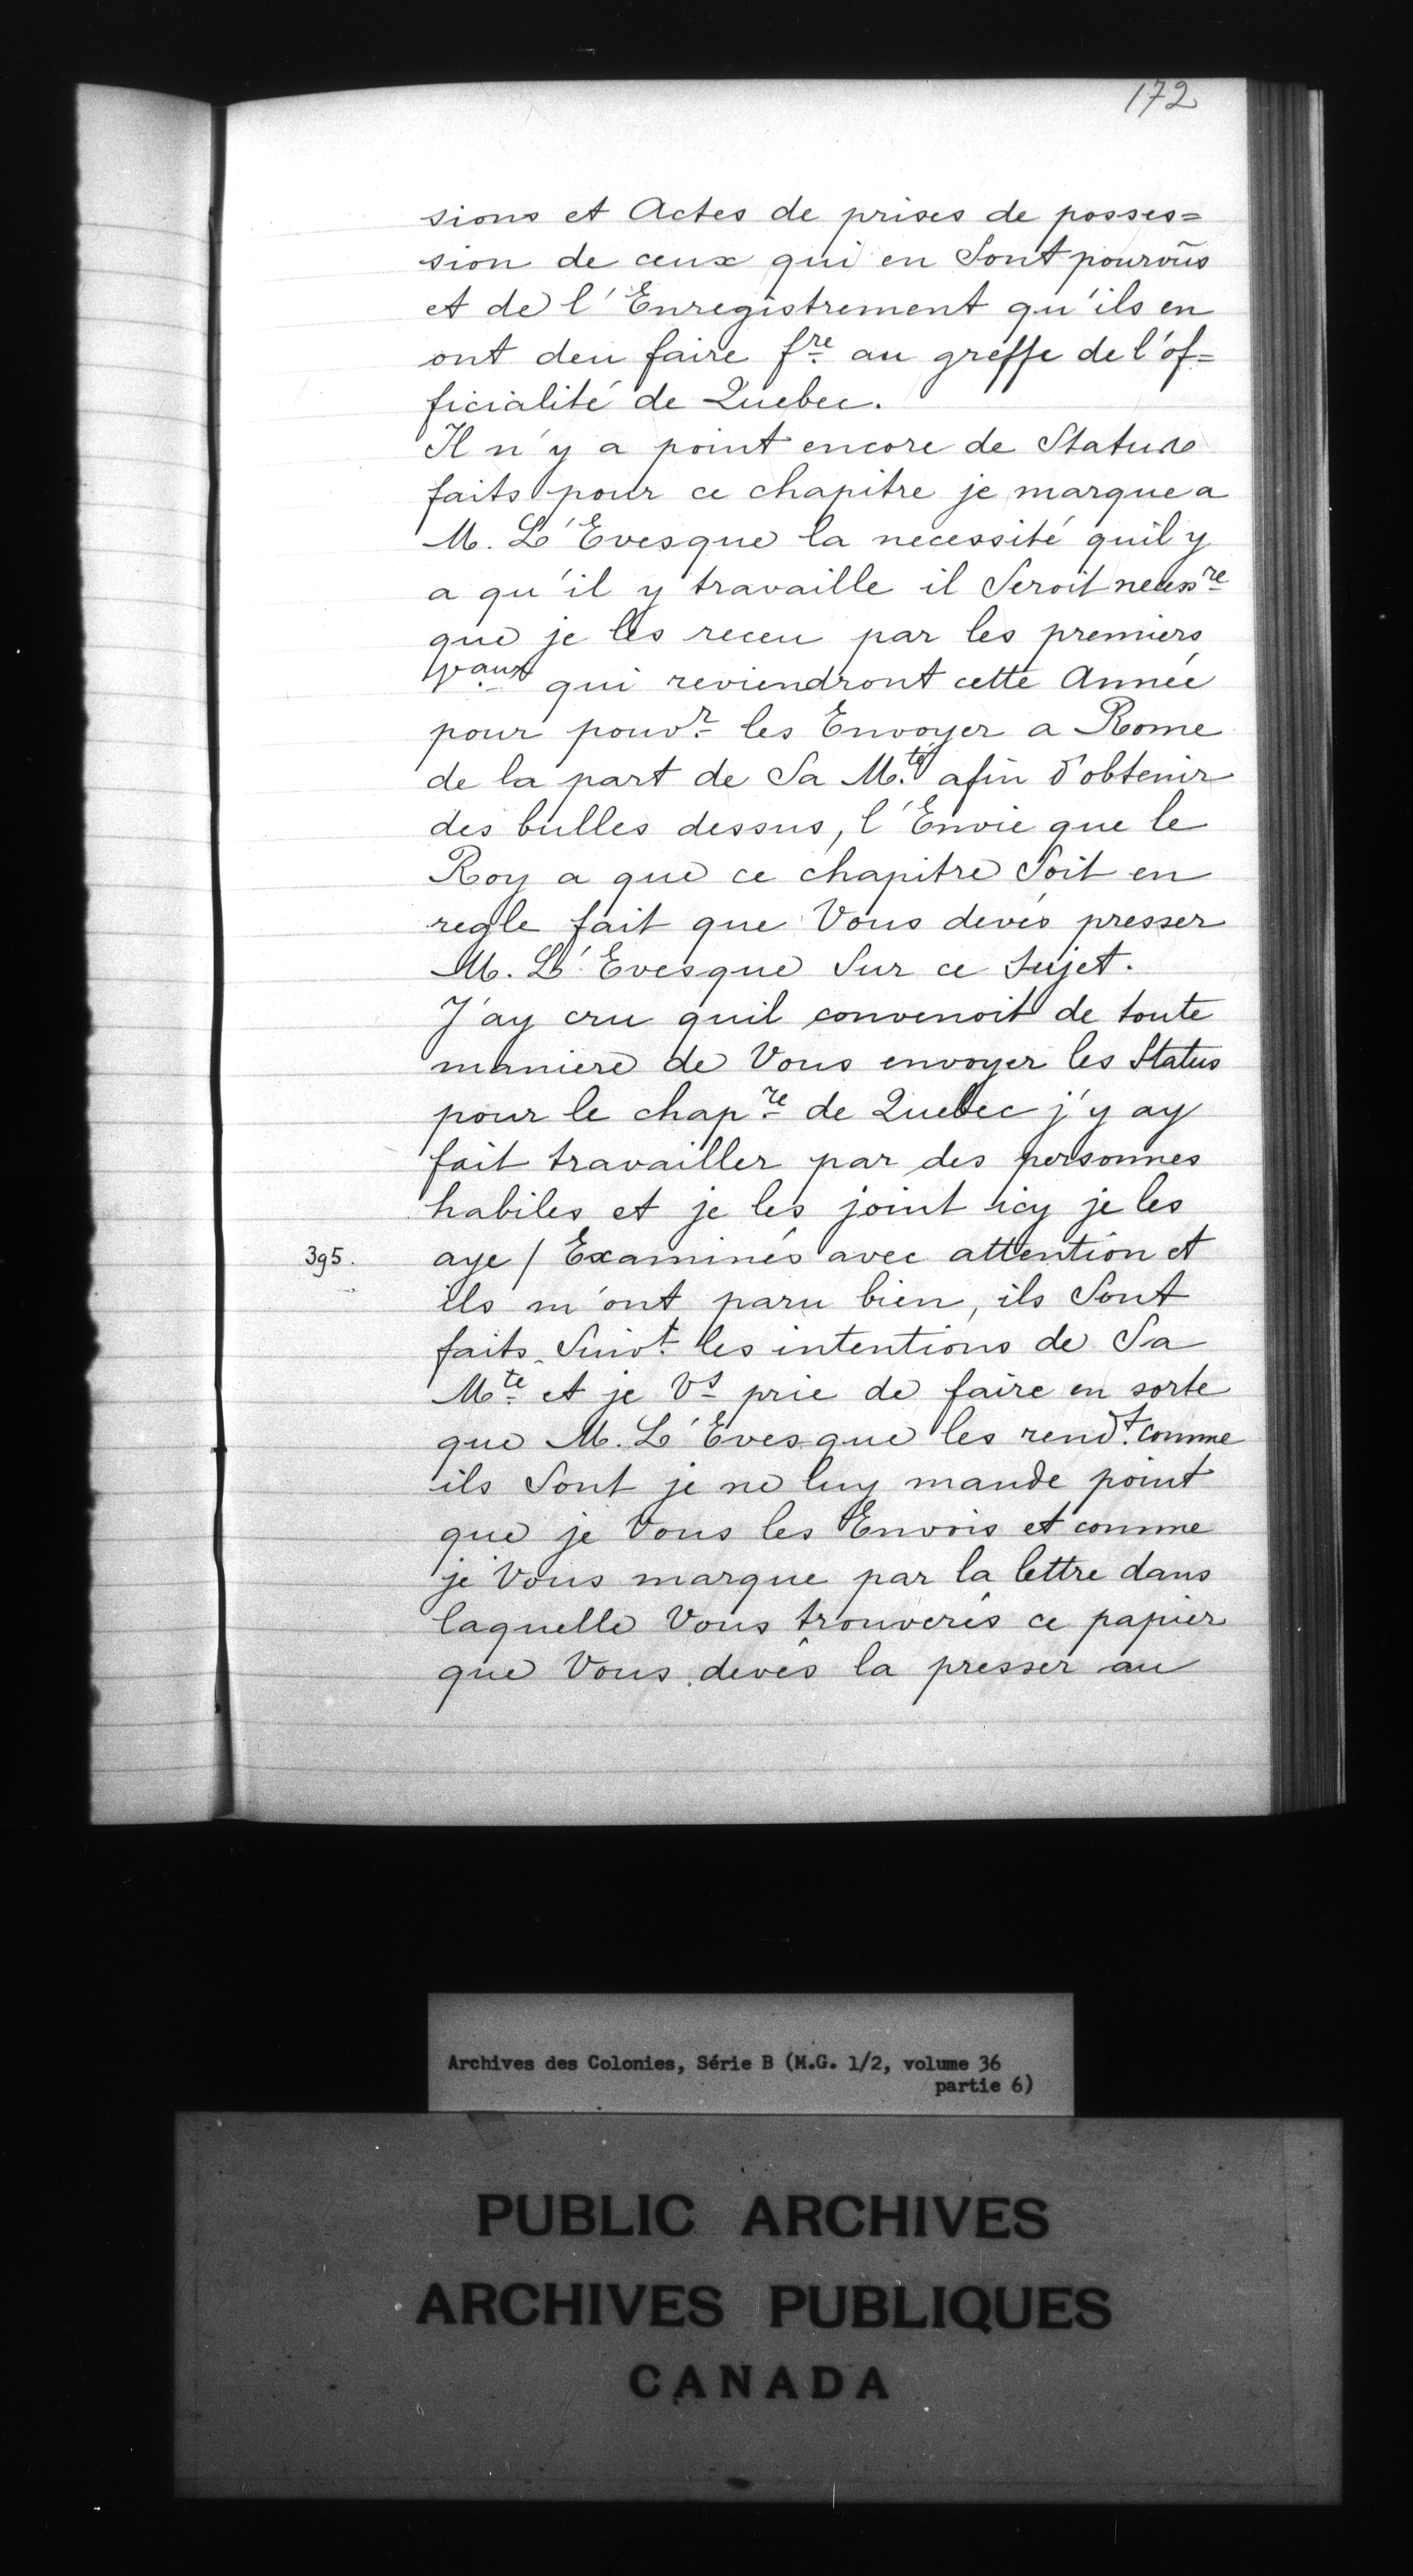 172
sions et Actes de prises de posses=
sion de ceux qui en Sont pourvûs
et de l'Enregistrement qu'ils en
ont deu faire fre au greffe de l'of=
ficialité de Quebec.
Il n'y a point encore de Statuts
faits pour ce chapitre je marque a
M. L'Evesque la necessité quil y
a qu'il y travaille il Seroit necessre
que je les receu par les premiers
Vaux qui reviendront cette Année
pour pouvr les Envoyer a Rome
de la part de Sa Mté afin d'obtenir
des bulles dessus, l'Envie que le
Roy a que ce chapitre Soit en
regle fait que Vous devés presser
M. L'Evesque Sur ce Sujet.
J'ay cru quil convenoit de toute
maniere de Vous envoyer les Status
pour le chapre de Quebec j'y ay
fait travailler par des personnes
habiles et je les joint icy je les
395. aye / Examinés avec attention et
ils m'ont paru bien, ils Sont
faits Suivt les intentions de Sa
Mte et je Vs prie de faire en sorte
que M. L'Evesque les rendt comme
ils Sont je ne luy mande point
que je Vous les Envois et comme
je Vous marque par la lettre dans
laquelle Vous trouverés ce papier
que Vous devés la presser au
Archives des Colonies, Série B (M.G. 1/2, volume 36
partie 6)
PUBLIC ARCHIVES
ARCHIVES PUBLIQUES
CANADA